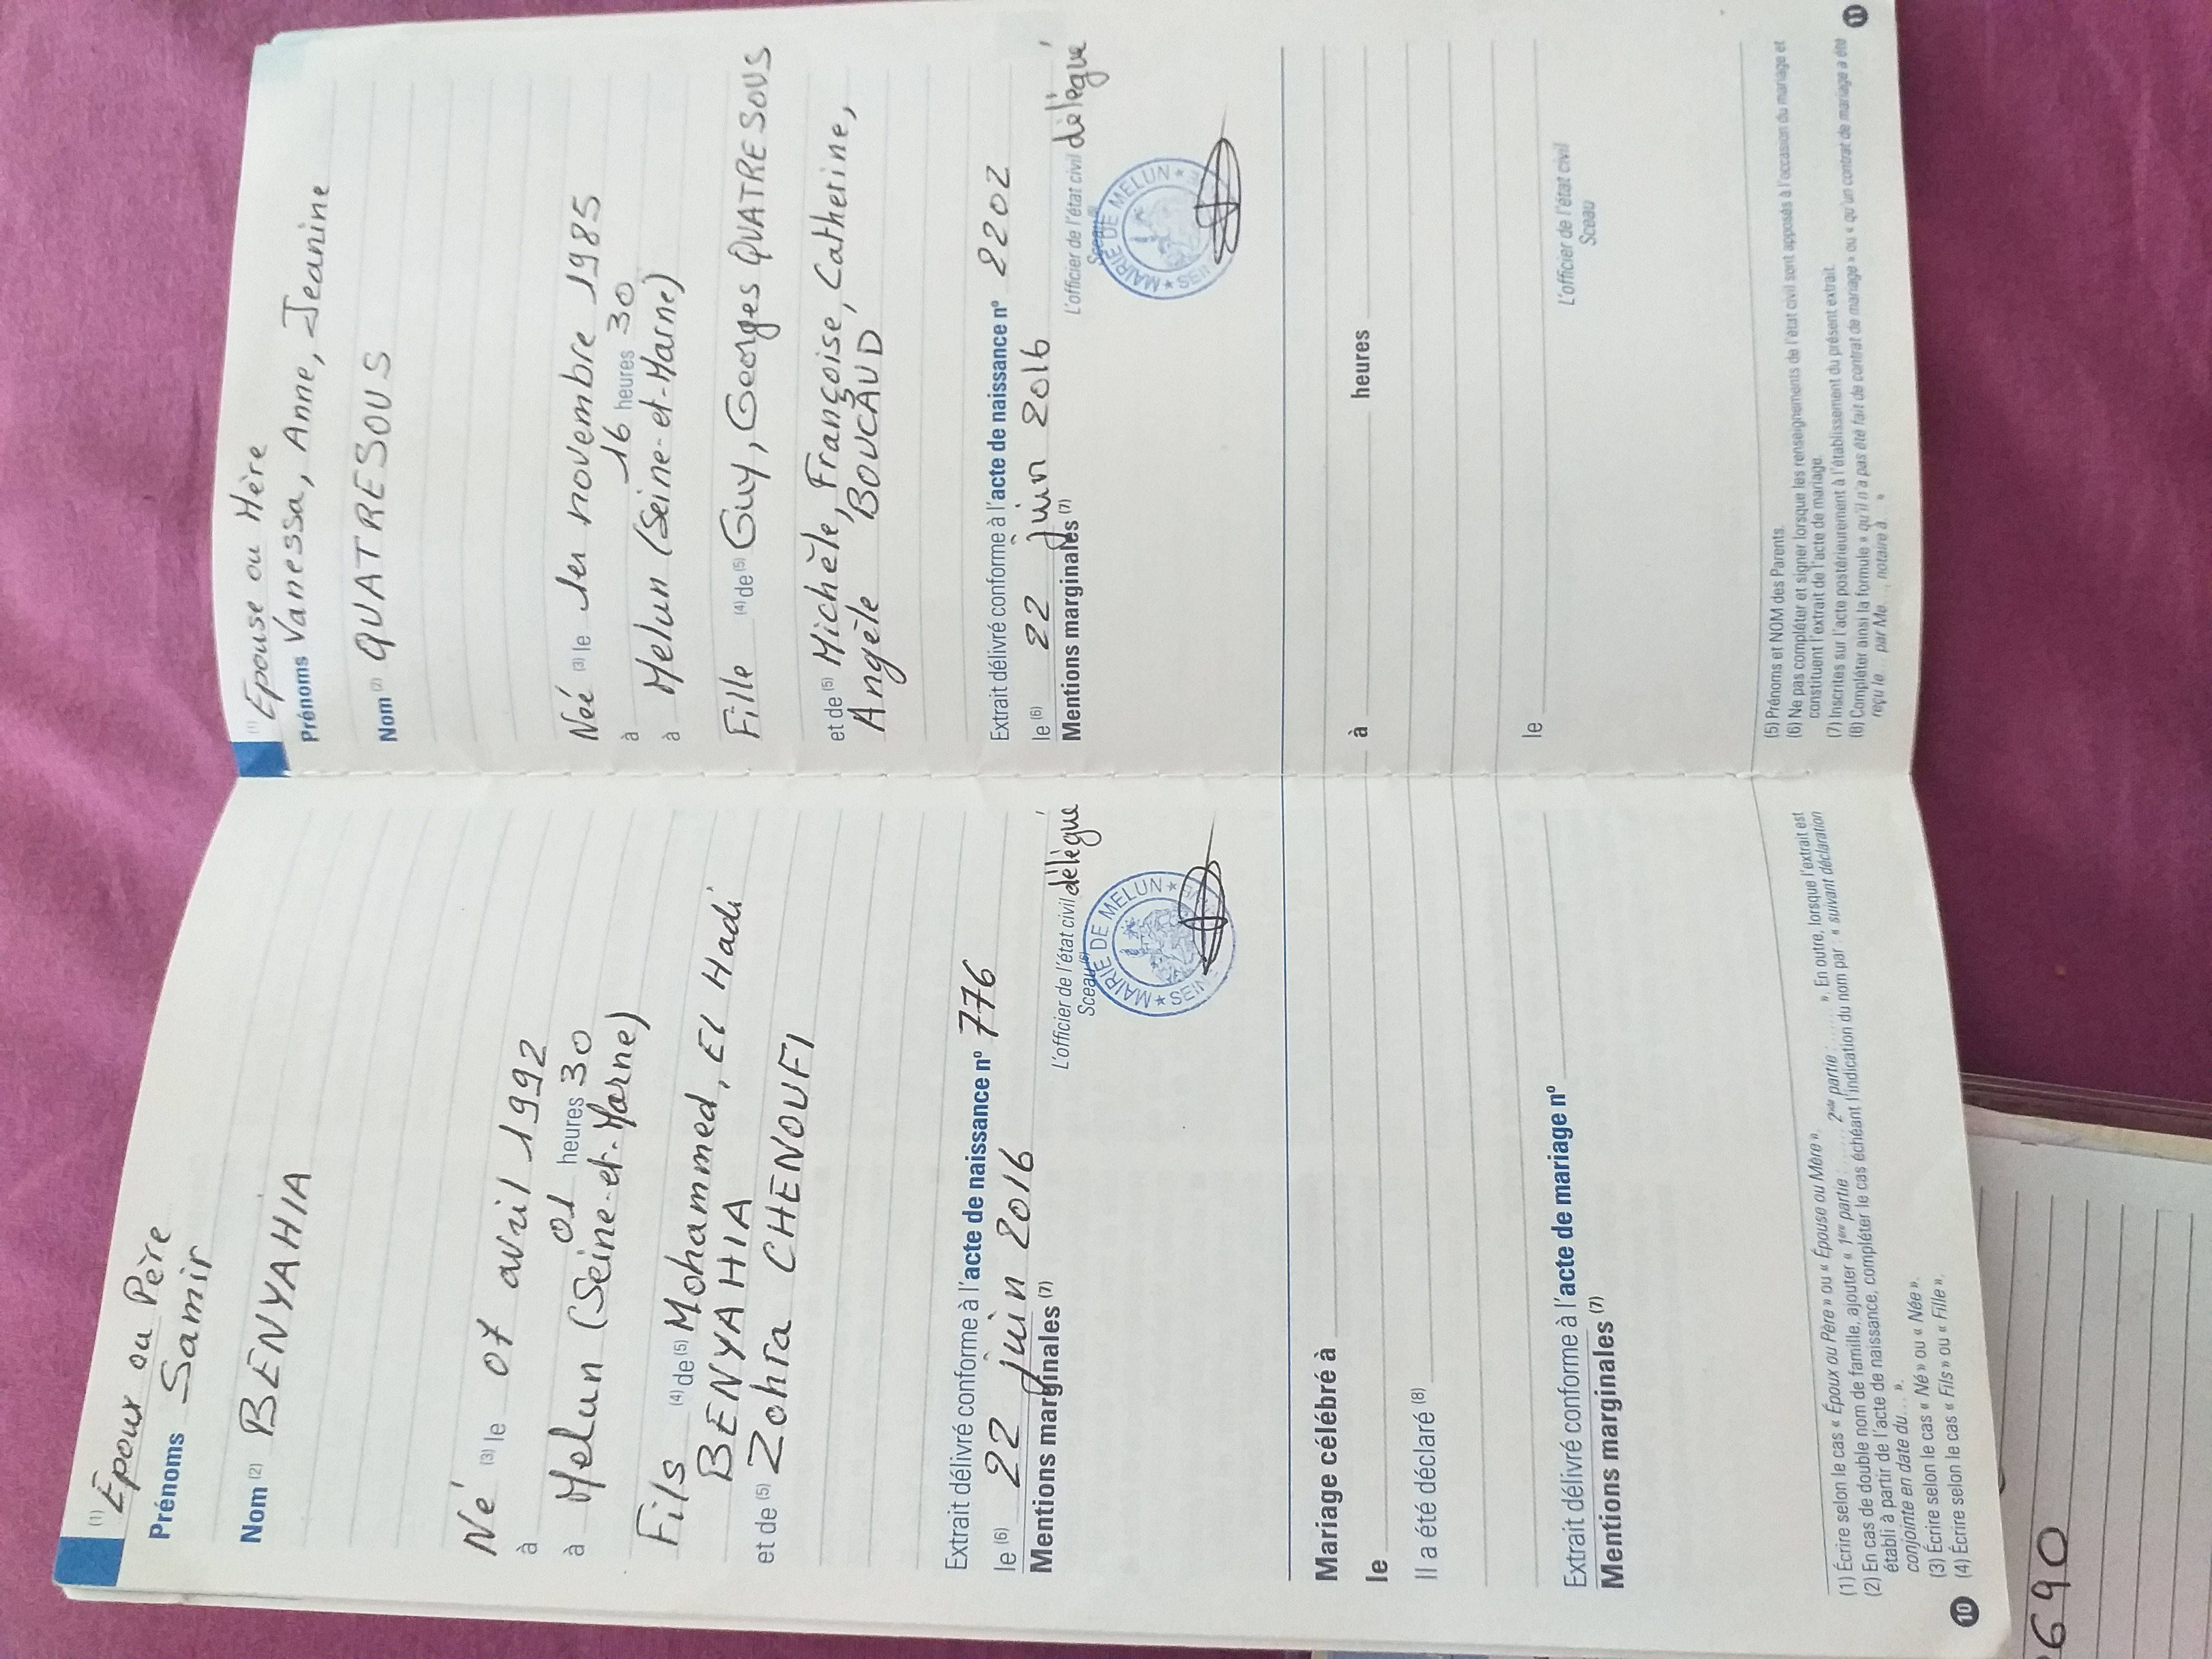 (1) Époux ou Père
Prénoms Samir
Nom (2) BENYAHIA
Né (3) le 07 avril 1992
à 01 heures 30
à Melun (Seine-et-Marne)
Fils (4) de (5) Mohammed, El Hadi
BENYAHIA
et de (5) Zohra CHENOUFI
Extrait délivré conforme à l'acte de naissance nº 776
le (6) 22 juin 2016
Mentions marginales (7)
L'officier de l'état civil délégué
Sceau (6)
MAIRIE DE MELUN
Mariage célébré à
le
Il a été déclaré (8)
Extrait délivré conforme à l'acte de mariage nº
Mentions marginales (7)
(1) Écrire selon le cas « Époux ou Père » ou « Épouse ou Mère ».
(2) En cas de double nom de famille, ajouter « 1ère partie : ...... 2nde partie : ...... ». En outre, lorsque l'extrait est
établi à partir de l'acte de naissance, compléter le cas échéant l'indication du nom par : « suivant déclaration
conjointe en date du... ».
(3) Écrire selon le cas « Né » ou « Née ».
(4) Écrire selon le cas « Fils » ou « Fille ».
10
(1) Épouse ou Mère
Prénoms Vanessa, Anne, Jeanine
Nom (2) QUATRESOUS
Née (3) le 1er novembre 1985
à 16 heures 30
à Melun (Seine-et-Marne)
Fille (4) de (5) Guy, Georges QUATRESOUS
et de (5) Michèle, Françoise, Catherine,
Angèle BOUCAUD
Extrait délivré conforme à l'acte de naissance nº 2202
le (6) 22 juin 2016
Mentions marginales (7)
L'officier de l'état civil délégué
Sceau
MAIRIE DE MELUN
à heures
le
L'officier de l'état civil
Sceau
(5) Prénoms et NOM des Parents.
(6) Ne pas compléter et signer lorsque les renseignements de l'état civil sont apposés à l'occasion du mariage et
constituent l'extrait de l'acte de mariage.
(7) Inscrites sur l'acte postérieurement à l'établissement du présent extrait.
(8) Compléter ainsi la formule « qu'il n'a pas été fait de contrat de mariage » ou « qu'un contrat de mariage a été
reçu le... par Me..., notaire à... »
11
690